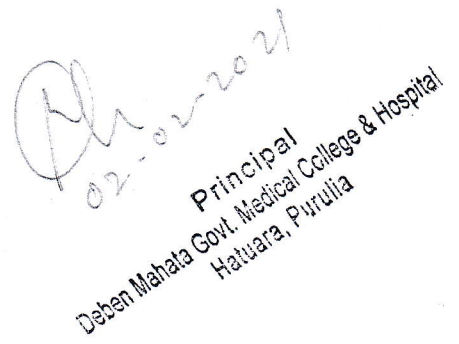 02-02-2021
Principal
Deben Mahata Govt. Medical College & Hospital
Hatuara, Purulia